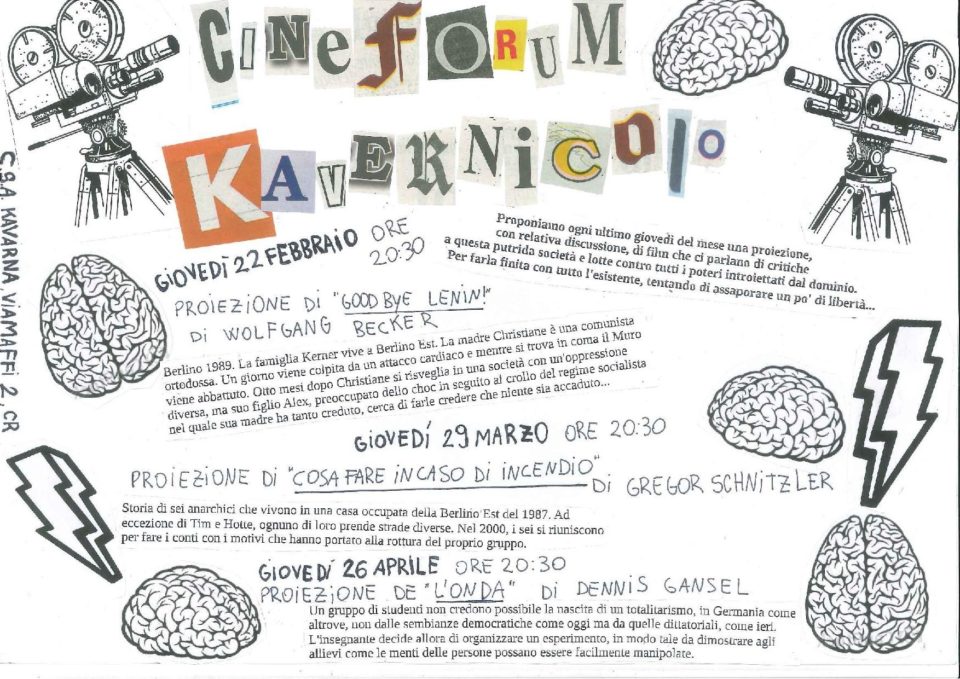 CiNeFORUM
KAVERNiColo
C.S.A. KAVARNA, VIA MAFFI 2, CR
GIOVEDÌ 22 FEBBRAIO ORE 20:30
Proponiamo ogni ultimo giovedì del mese una proiezione,
con relativa discussione, di film che ci parlano di critiche
a questa putrida società e lotte contro tutti i poteri introiettati dal dominio.
Per farla finita con tutto l'esistente, tentando di assaporare un po' di libertà...
PROIEZIONE DI "GOOD BYE LENIN!"
DI WOLFGANG BECKER
Berlino 1989. La famiglia Kerner vive a Berlino Est. La madre Christiane è una comunista
ortodossa. Un giorno viene colpita da un attacco cardiaco e mentre si trova in coma il Muro
viene abbattuto. Otto mesi dopo Christiane si risveglia in una società con un'oppressione
diversa, ma suo figlio Alex, preoccupato dello choc in seguito al crollo del regime socialista
nel quale sua madre ha tanto creduto, cerca di farle credere che niente sia accaduto...
GIOVEDÍ 29 MARZO ORE 20:30
PROIEZIONE DI "COSA FARE IN CASO DI INCENDIO"
DI GREGOR SCHNITZLER
Storia di sei anarchici che vivono in una casa occupata della Berlino Est del 1987. Ad
eccezione di Tim e Hotte, ognuno di loro prende strade diverse. Nel 2000, i sei si riuniscono
per fare i conti con i motivi che hanno portato alla rottura del proprio gruppo.
GIOVEDÍ 26 APRILE ORE 20:30
PROIEZIONE DE "L'ONDA" DI DENNIS GANSEL
Un gruppo di studenti non credono possibile la nascita di un totalitarismo, in Germania come
altrove, non dalle sembianze democratiche come oggi ma da quelle dittatoriali, come ieri.
L'insegnante decide allora di organizzare un esperimento, in modo tale da dimostrare agli
allievi come le menti delle persone possano essere facilmente manipolate.